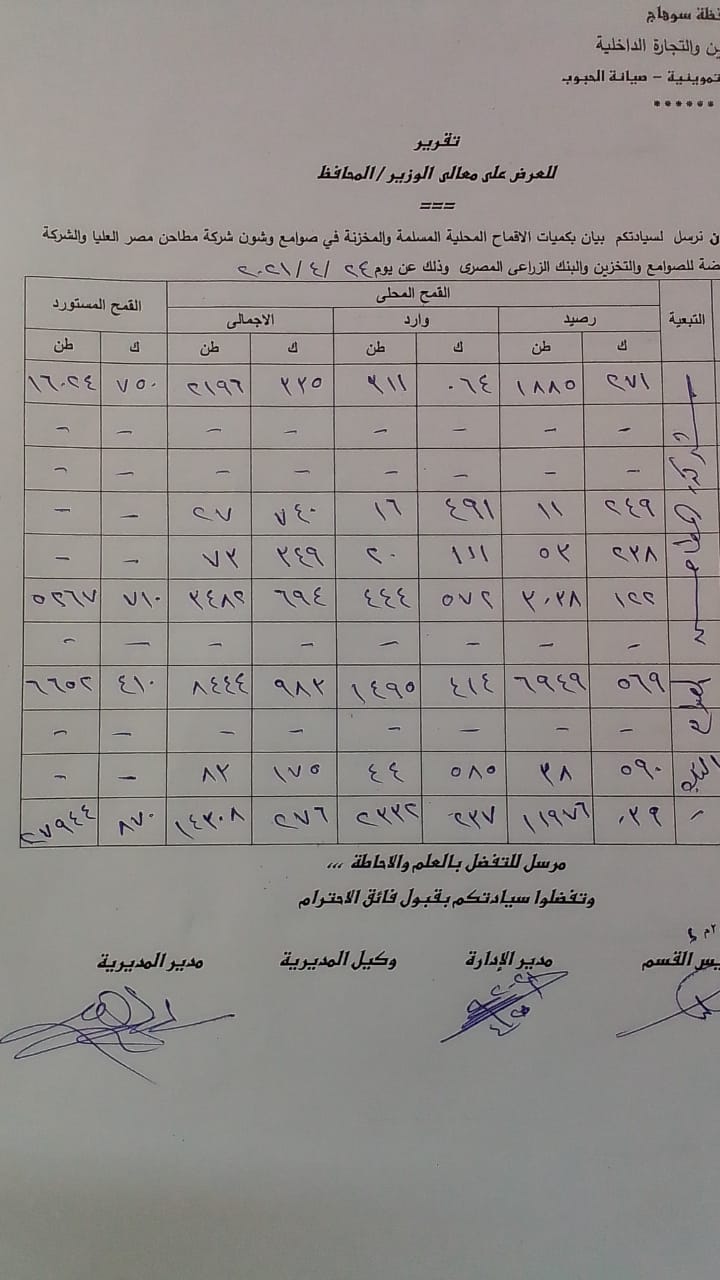 ظة سوهاج
ين والتجارة الداخلية
تموينية – صيانة الحبوب
******
تقرير
للعرض على معالى الوزير / المحافظ
===
ن نرسل لسيادتكم بيان بكميات الاقماح المحلية المسلمة والمخزنة في صوامع وشون شركة مطاحن مصر العليا والشركة
ضة للصوامع والتخزين والبنك الزراعى المصرى وذلك عن يوم ٢٤ / ٤ / ٢٠٢١
التبعية القمح المحلى القمح المستورد
رصيد وارد الاجمالى
ك طن ك طن ك طن ك طن
٢٧١ ١٨٨٥ ٠٦٤ ٣١١ ٣٣٥ ٢١٩٦ ٧٥٠ ١٦٠٢٤
– – – – – – – –
– – – – – – – –
٢٤٩ ١١ ٤٩١ ١٦ ٧٤٠ ٢٧ – –
٢٣٨ ٥٣ ١١١ ٢٠ ٣٤٩ ٧٣ – –
١٢٢ ٣٠٣٨ ٥٧٢ ٤٤٤ ٦٩٤ ٣٤٨٢ ٧١٠ ٥٢٦٧
– – – – – – – –
٥٦٩ ٦٩٤٩ ٤١٤ ١٤٩٥ ٩٨٣ ٨٤٤٤ ٤١٠ ٦٦٥٢
– – – – – – – –
٥٩٠ ٣٨ ٥٨٥ ٤٤ ١٧٥ ٨٣ – –
٠٣٩ ١١٩٧٦ ٢٣٧ ٢٣٣٢ ٢٧٦ ١٤٣٠٨ ٨٧٠ ٢٧٩٤٤
مرسل للتفضل بالعلم والاحاطة ،،،
وتفضلوا سيادتكم بقبول فائق الاحترام
يس القسم مدير الإدارة وكيل المديرية مدير المديرية